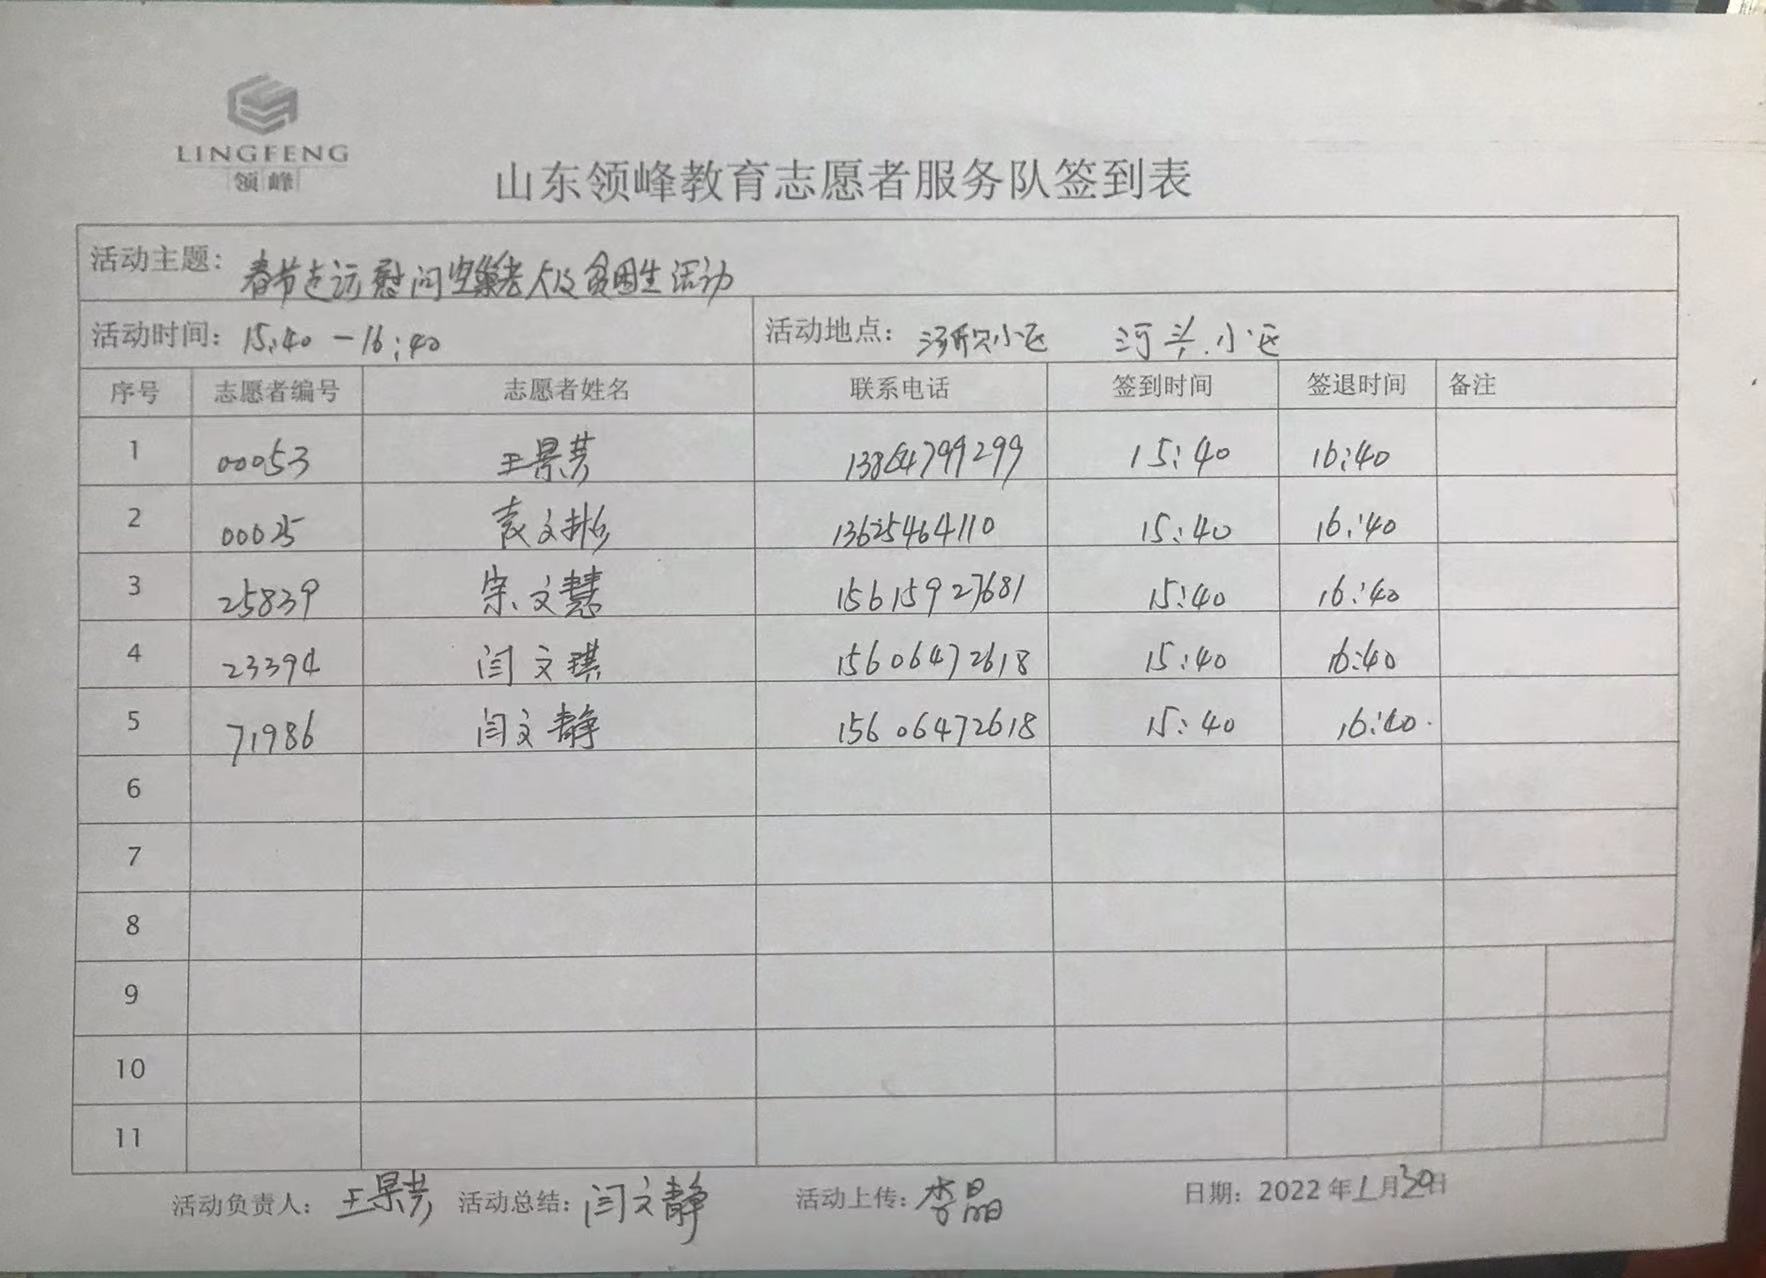 LINGFENG
领峰
山东领峰教育志愿者服务队签到表
活动主题: 春节走访慰问空巢老人及贫困生活动
活动时间: 15:40-16:40 活动地点: 小区 河头小区
序号 志愿者编号 志愿者姓名 联系电话 签到时间 签退时间 备注
1 00053 王景芳 13864799299 15:40 16:40
2 00025 袁文彬 13625464110 15:40 16:40
3 25839 宗文慧 15615927681 15:40 16:40
4 23394 闫文琪 15606472618 15:40 16:40
5 71986 闫文静 15606472618 15:40 16:40
6
7
8
9
10
11
活动负责人: 王景芳 活动总结: 闫文静 活动上传: 李晶 日期: 2022年1月30日